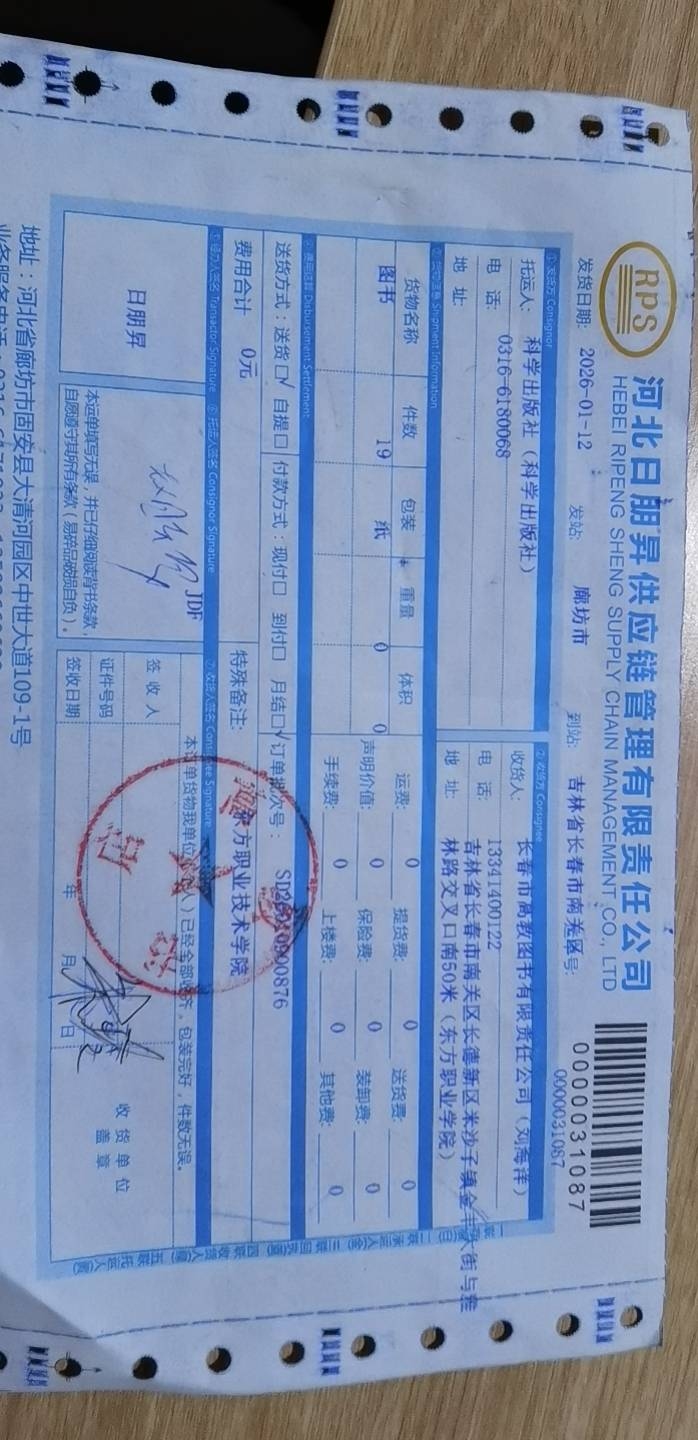 RPS
河北日朋昇供应链管理有限责任公司
HEBEI RIPENG SHENG SUPPLY CHAIN MANAGEMENT CO., LTD
0000031087
0000031087
发货日期: 2026-01-12 发站: 廊坊市 到站: 吉林省长春市南关区 号:
①发货方 Consignor
②收货方 Consignee
托运人: 科学出版社（科学出版社）
收货人: 长春市高教图书有限责任公司（刘海洋）
电 话: 0316-6180068
电 话: 13341400122
地 址:
地 址: 吉林省长春市南关区长德新区米沙子镇金丰大街与雅
林路交叉口南50米（东方职业学院）
Shipment Information
货物名称 件数 包装 重量 体积
图书 19 纸 0 0
运费: 0 提货费: 0 送货费: 0
声明价值: 0 保险费: 0 装卸费: 0
手续费: 0 上楼费: 0 其他费: 0
Disbursement Settlement
送货方式：送货☑ 自提□ 付款方式：现付□ 到付□ 月结☑ 订单批次号： SD26010000876
费用合计 0元
特殊备注: 东方职业技术学院
⑤经办人签名 Transactor Signature
⑥托运人签名 Consignor Signature
⑦收货人签名 Consignee Signature
日朋昇
JDF
本运单填写无误，并已仔细阅读背书条款，
自愿遵守其所有条款（易碎品破损自负）。
本运单货物我单位（人）已经全部收齐，包装完好，件数无误。
签 收 人
证件号码
签收日期 年 月 日
收 货 单 位
盖 章
地址：河北省廊坊市固安县大清河园区中世大道109-1号